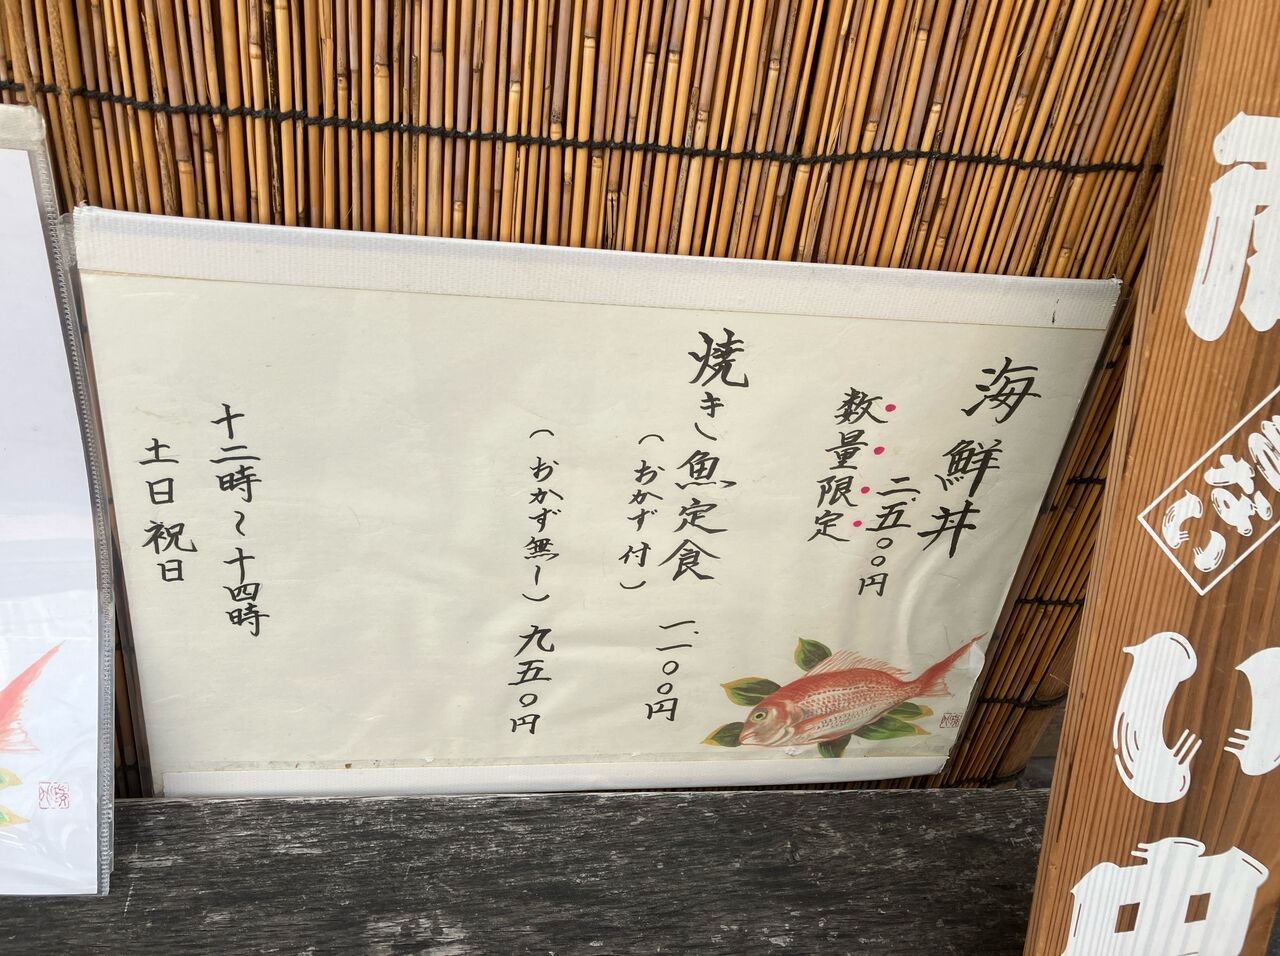 海鮮丼
二、五〇〇円
数量限定
焼き魚定食
(おかず付) 一、一〇〇円
(おかず無し) 九五〇円
十二時~十四時
土日祝日